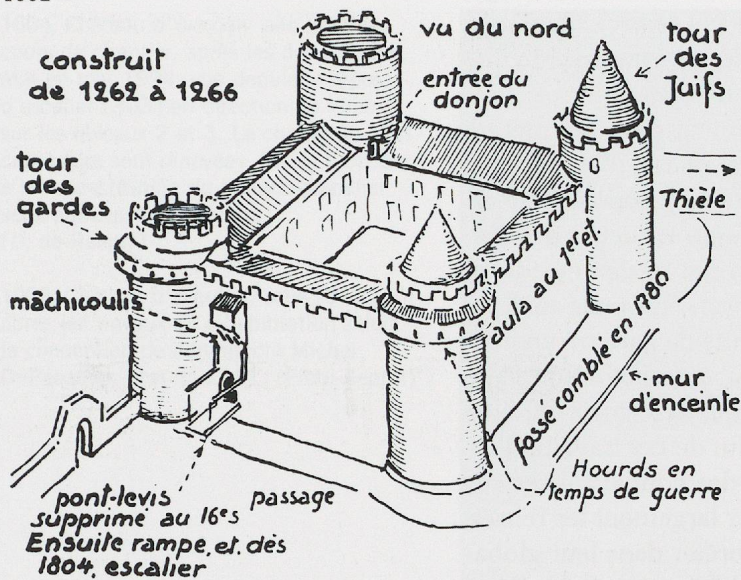 construit
de 1262 à 1266
vu du nord
entrée du
donjon
tour
des
Juifs
tour
des
gardes
Thièle
mâchicoulis
aula au 1er et.
fossé comblé en 1780
mur
d'enceinte
Hourds en
temps de guerre
passage
pont-levis
supprimé au 16es
Ensuite rampe, et, dès
1804, escalier